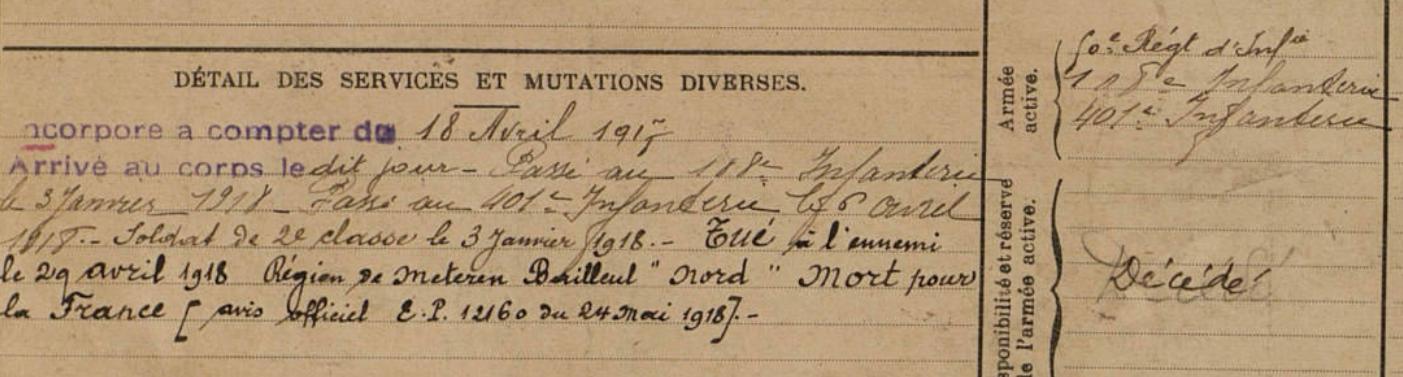 DÉTAIL DES SERVICES ET MUTATIONS DIVERSES.
ncorporé à compter du 18 Avril 1917
Arrivé au corps le dit jour - Passé au 108e Infanterie
le 3 Janvier 1918 - Passé au 401e Infanterie le 6 avril
1918. - Soldat de 2e classe le 3 Janvier 1918. - Tué à l'ennemi
le 29 avril 1918 Région de Meteren Bailleul " Nord " Mort pour
la France [ avis officiel E.P. 12160 du 24 Mai 1918]. -
Armée
active.
50e Régt d'Infie
108e Infanterie
401e Infanterie
sponibilité et réserve
de l'armée active.
Décédé